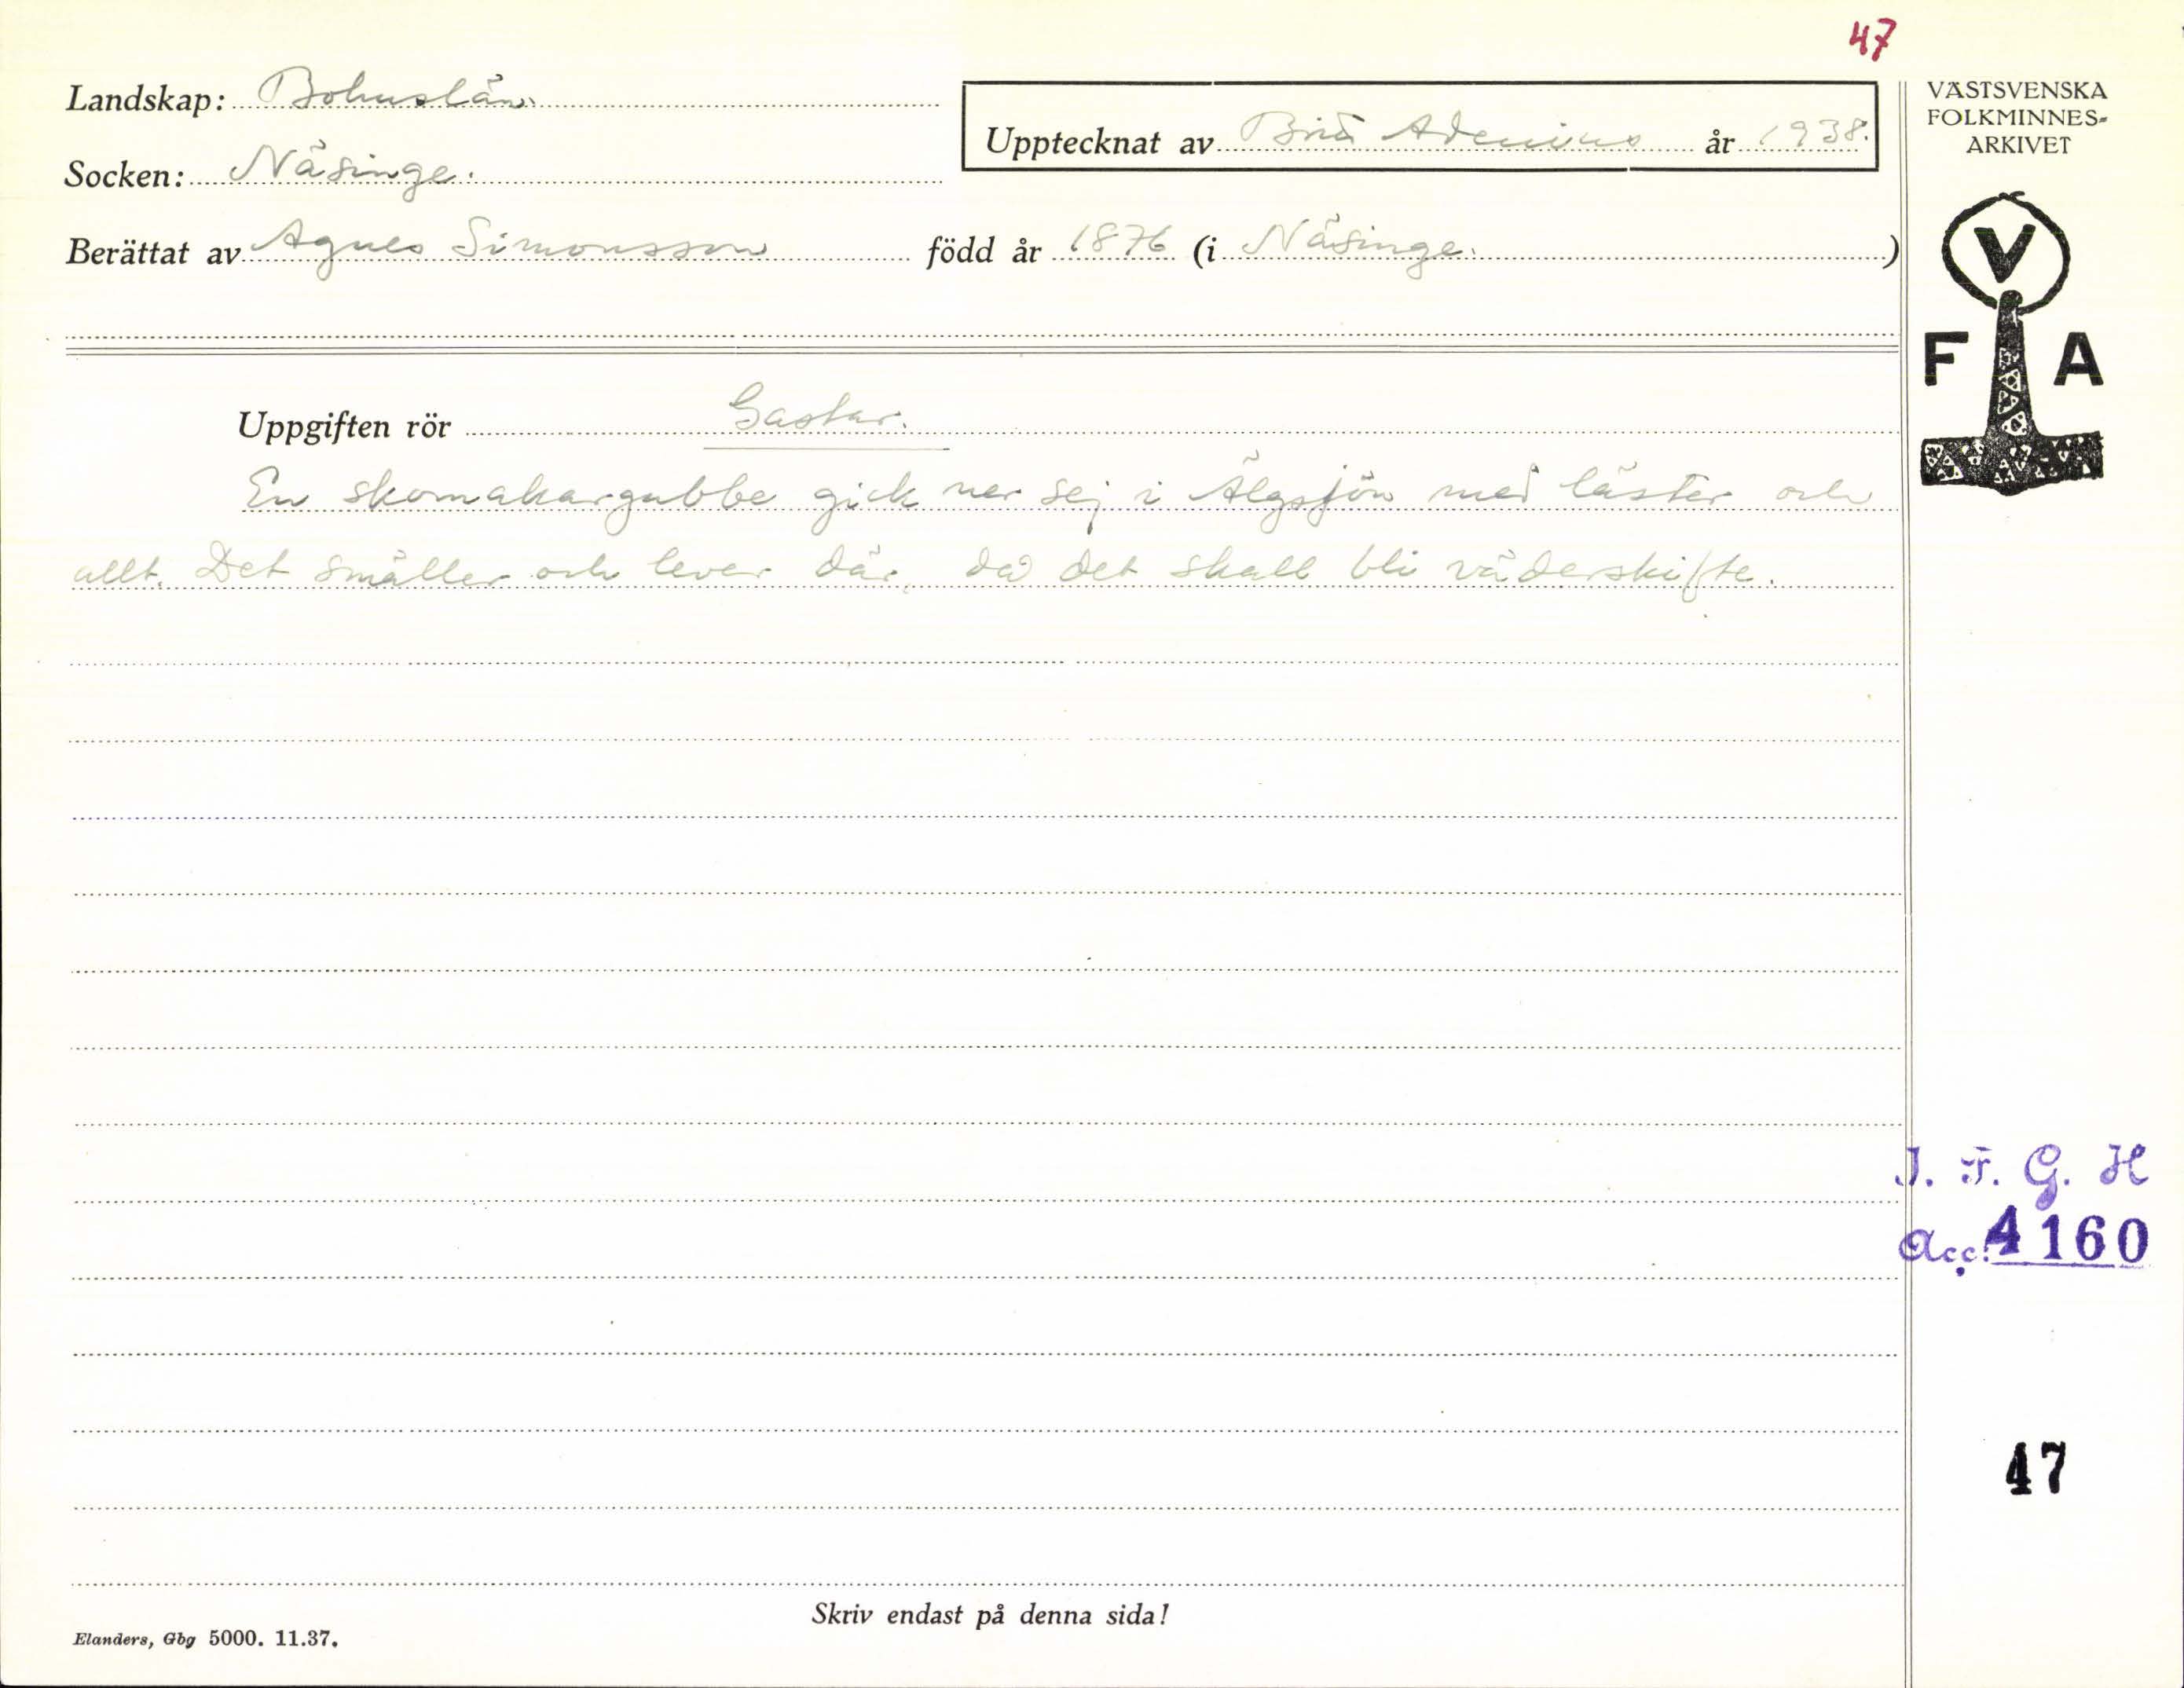 47
Landskap: Bohuslän.
Upptecknat av Brita Adenius år 1938.
Socken: Näsinge.
Berättat av Agnes Simonsson född år 1876 (i Näsinge.)
VÄSTSVENSKA
FOLKMINNES-
ARKIVET
V
F A
Uppgiften rör Gastar.
En skomakargubbe gick ner sej i Älgsjön med läster och
allt. Det smäller och lever där, då det skall bli väderskifte.
I. F. G. H
Acc. 4160
47
Skriv endast på denna sida!
Elanders, Gbg 5000. 11.37.